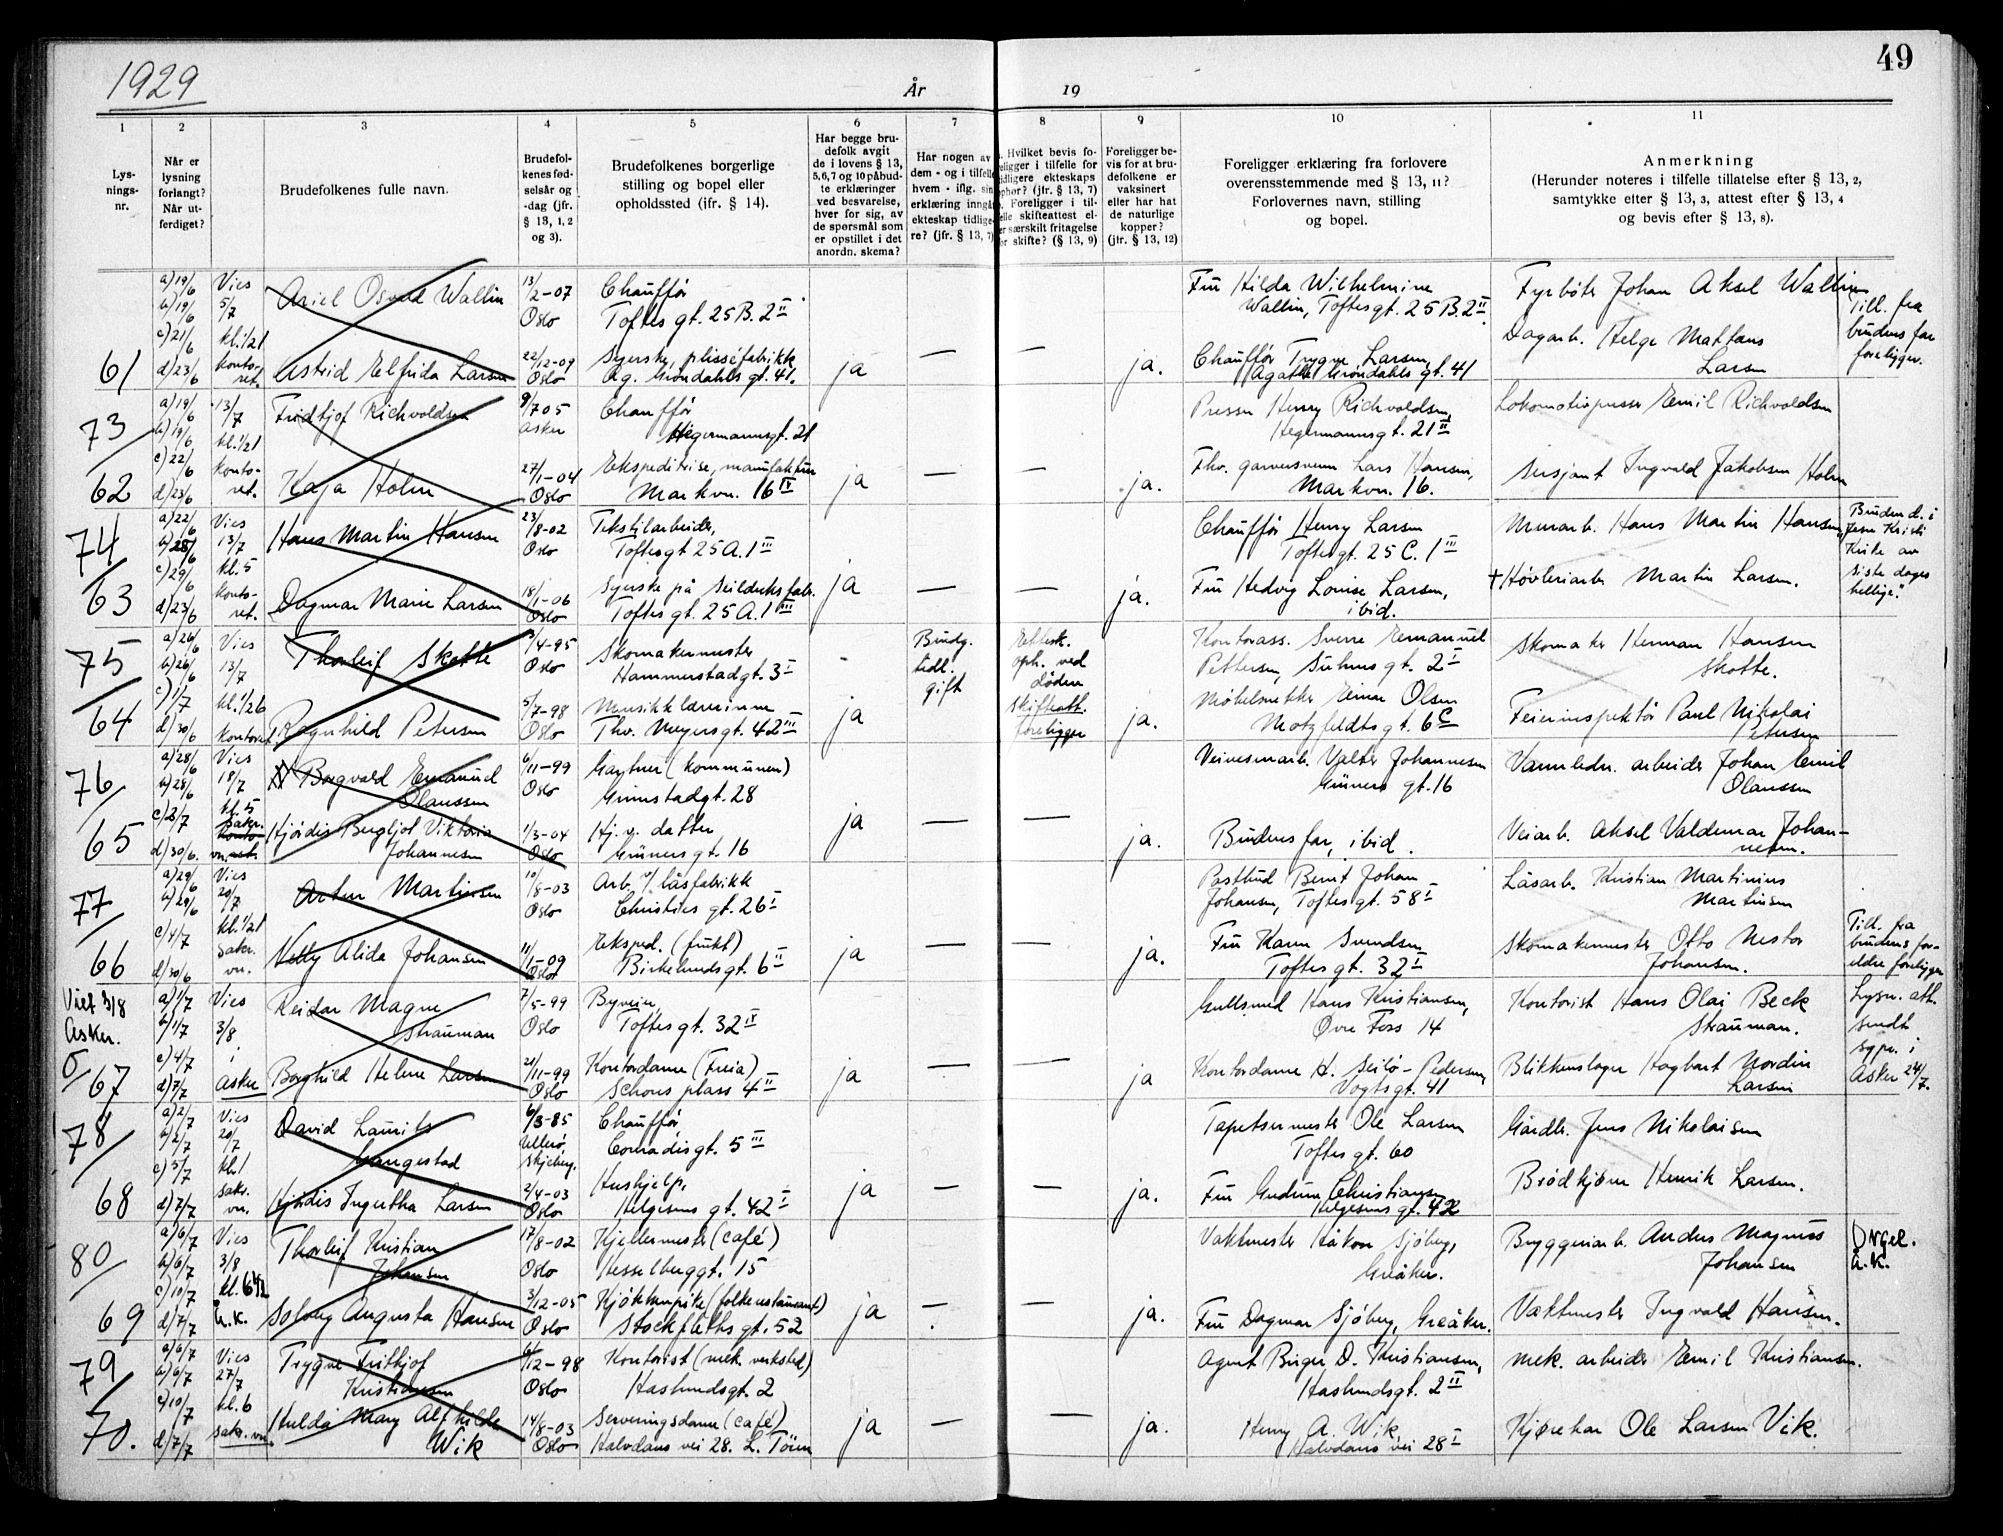 1929
År
19
49
1
2
3
4
5
6
7
8
9
10
11
Lys-
nings-
nr.
Når er
lysning
forlangt?
Når ut-
ferdiget?
Brudefolkenes fulle navn.
Brudefol-
kenes fød-
selsår og
-dag (jfr.
§ 13, 1, 2
og 3).
Brudefolkenes borgerlige
stilling og bopel eller
opholdssted (ifr. § 14).
Har begge bru-
defolk avgit
de i lovens § 13,
5,6,7 og 10 påbud-
te erklæringer
ved besvarelse,
hver for sig, av
de spørsmål som
er opstillet i det
anordn. skema?
Har nogen av
dem - og i tilfelle
hvem - iflg. sin
erklæring inngå
ekteskap tidlige-
re? (jfr. § 13, 7)
Hvilket bevis fo-
religger i tilfelle for
tidligere ekteskaps
ophør? (jfr. § 13, 7)
Foreligger i til-
elle skifteattest el-
er særskilt fritagelse
or skifte? (§ 13, 9)
Foreligger be-
vis for at bru-
defolkene er
vaksinert
eller har hat
de naturlige
kopper?
(jfr. § 13, 12)
Foreligger erklæring fra forlovere
overensstemmende med § 13, 11?
Forlovernes navn, stilling
og bopel.
Anmerkning
(Herunder noteres i tilfelle tillatelse efter § 13, 2,
samtykke efter § 13, 3, attest efter § 13, 4
og bevis efter § 13, 8).
61
a) 19/6 b) 19/6 c) 21/6 d) 23/6
Vies 5/7 kl. 1/21 kontoret.
Ariel Osvald Wallin
13/2-07 Oslo
Chauffør
Toftes gt. 25 B. 2 II
Fru Hilda Wilhelmine
Wallin, Toftes gt. 25 B. 2 II
Fyrbøter Johan Aksel Wallin
Astrid Elfrida Larsen
22/12-09 Oslo
Syerske, plisséfabrikk
Ag. Grøndahls gt. 41.
ja — — ja.
Chauffør Trygve Larsen,
Agathe Grøndahls gt. 41
Dagarb. Helge Mathæus
Larsen
Till. fra
brudens far
foreligger.
73
62
a) 19/6 b) 19/6 c) 22/6 d) 23/6
13/7 kl. 1/21 kontoret.
Fridtjof Richvoldsen
9/7 05 Asker
Chauffør
Hegermannsgt. 21
Presser Henry Richvoldsen,
Hegermannsgt. 21 II
Lokomotivpusser Emil Richvoldsen
Kaja Holm
27/1-04 Oslo
Ekspeditrise, manufaktur
Markvn. 16 IV
ja — — ja.
Fhv. garversvenn Lars Hansen,
Markvn. 16.
Sersjant Ingvald Jakobsen Holm
74
63
a) 22/6 b) 28/6 c) 29/6 d) 23/6
Vies 13/7 kl. 5 kontoret.
Hans Martin Hansen
23/8-02 Oslo
Tekstilarbeider,
Toftesgt 25 A. 1 III
Chauffør Henry Larsen
Toftesgt. 25 C. 1 III
Murarb. Hans Martin Hansen
Dagmar Marie Larsen
18/1-06 Oslo
Syerske på Seilduksfabr.
Toftes gt. 25 A. 1 III
ja — — ja.
Fru Hedvig Louise Larsen,
ibid.
† Høvleriarb. Martin Larsen.
Bruden d. i
"Jesu Kristi
Kirke av
siste dages
hellige".
75
64
a) 26/6 b) 26/6 c) 1/7 d) 30/6
Vies 13/7 kl. 1/26 kontoret.
Thorleif Skotte
/4-95 Oslo
Skomakermester
Hammerstadgt. 3 I
Brudg.
tidl.
gift
Ektesk.
oph. ved
døden
skifteatt.
foreligger
Kontorass. Sverre Emanuel
Pettersen, Suhms gt. 2 I
Skomaker Herman Hansen
Skotte.
Ragnhild Petersen
5/7-98 Oslo
Musikklærerinne
Thv. Meyers gt. 42 III
ja ja.
Møbelsnekker Einar Olsen
Motzfeldts gt. 6 C
Feierinspektør Paul Nikolai
Petersen
76
65
a) 28/6 b) 28/6 c) 2/7 d) 30/6.
Vies 18/7 kl. 5 sakr. vn.
Borgvald Emanuel
Olaussen
6/11-99 Oslo
Gartner (kommunen)
Grimstadgt. 28
Veivesenarb. Valter Johannesen
Grüners gt. 16
Varmledn. arbeider Johan Emil
Olaussen
Hjørdis Bergljot Viktoria
Johannesen
1/3-04 Oslo
Hj. v. datter
Grüners gt. 16
ja — — ja.
Brudens far, ibid.
Veiarb. Aksel Valdemar Johan-
nesen.
77
66
a) 29/6 b) 29/6 c) 4/7 d) 30/6
Vies 20/7 kl. 1/21 sakr. vn.
Artur Martinsen
10/8-03 Oslo
Arb. v/ låsfabrikk
Christies gt. 26 I
Postbud Bernt Johan
Johansen, Toftes gt. 58 I
Låsarb. Kristian Martinius
Martinsen
Netty Alida Johansen
11/1-09 Oslo
Eksped. (frukt)
Birkelunds gt. 6 II
ja — — ja.
Fru Karen Svendsen
Toftes gt. 32 I
Skomakermester Otto Nestor
Johansen.
Till. fra
brudens for-
eldre foreligger
Viet 3/8
Asker.
0
67
a) 1/7 b) 1/7 c) 4/7 d) 7/7
Vies 3/8 i Asker
Reidar Magne
Strauman
7/5-99 Oslo
Byveien,
Toftes gt. 32 IV
Gullsmed Hans Kristiansen,
Øvre Foss 14
Kontorist Hans Olai Beck
Strauman.
Borghild Helene Larsen
21/11-99 Oslo
Kontordame (Freia)
Schous plass 4 II
ja — — ja
Kontordame H. Seilø-Pedersen,
Vogts gt. 41
Blikkenslager Hagbart Nordin
Larsen
Lysn. att.
sendt
sgpr. i
Asker 24/7.
78
68
a) 2/7 b) 2/7 c) 5/7 d) 7/7
Vies 20/7 kl. 1 sakr. vn.
David Laurits
Gangestad
6/3-85 Ullerø, Skjeberg.
Chauffør,
Conradis gt. 5 III
Tapetsermester Ole Larsen
Toftes gt. 60
Gårdbr. Jens Nikolaisen
Hjørdis Ingertha Larsen
2/4-03 Oslo
Hushjelp,
Helgesens gt. 42 I
ja — — ja.
Fru Gudrun Christiansen
Helgesens gt. 42
Brødkjører Henrik Larsen.
80
69
a) 6/7 b) 6/7 c) 10/7 d) 7/7
Vies 3/8 kl. 6 1/2 U.K.
Thorleif Kristian
Johansen
17/8-02 Oslo
Kjellermester (café)
Hesselberggt. 15
Vaktmester Håkon Sjøberg,
Greåker.
Bryggeriarb. Anders Magnus
Johansen
Orgel.
U.K.
Solveig Augusta Hansen
3/12-05 Oslo
Kjøkkenpike (folkerestaurant)
Stockfleths gt. 52
ja — — ja.
Fru Dagmar Sjøberg, Greåker.
Vaktmester Ingvald Hansen.
79
70.
a) 6/7 b) 6/7 c) 10/7 d) 7/7
Vies 27/7 kl. 6 sakr. vn.
Trygve Fritjof
Kristiansen
/12-98 Oslo
Kontorist (mek. verksted)
Haslundsgt. 2
Agent Birger D. Kristiansen,
Haslundsgt. 2 II
Mek. arbeider Emil Kristiansen.
Hulda Mary Alfhilde
Wik
14/8-03 Oslo
Serveringsdame (café)
Halvdans vei 28. L. Tøien
ja — — ja.
Henry A. Wik,
Halvdans vei 28 I
Kjørekar Ole Larsen Vik.